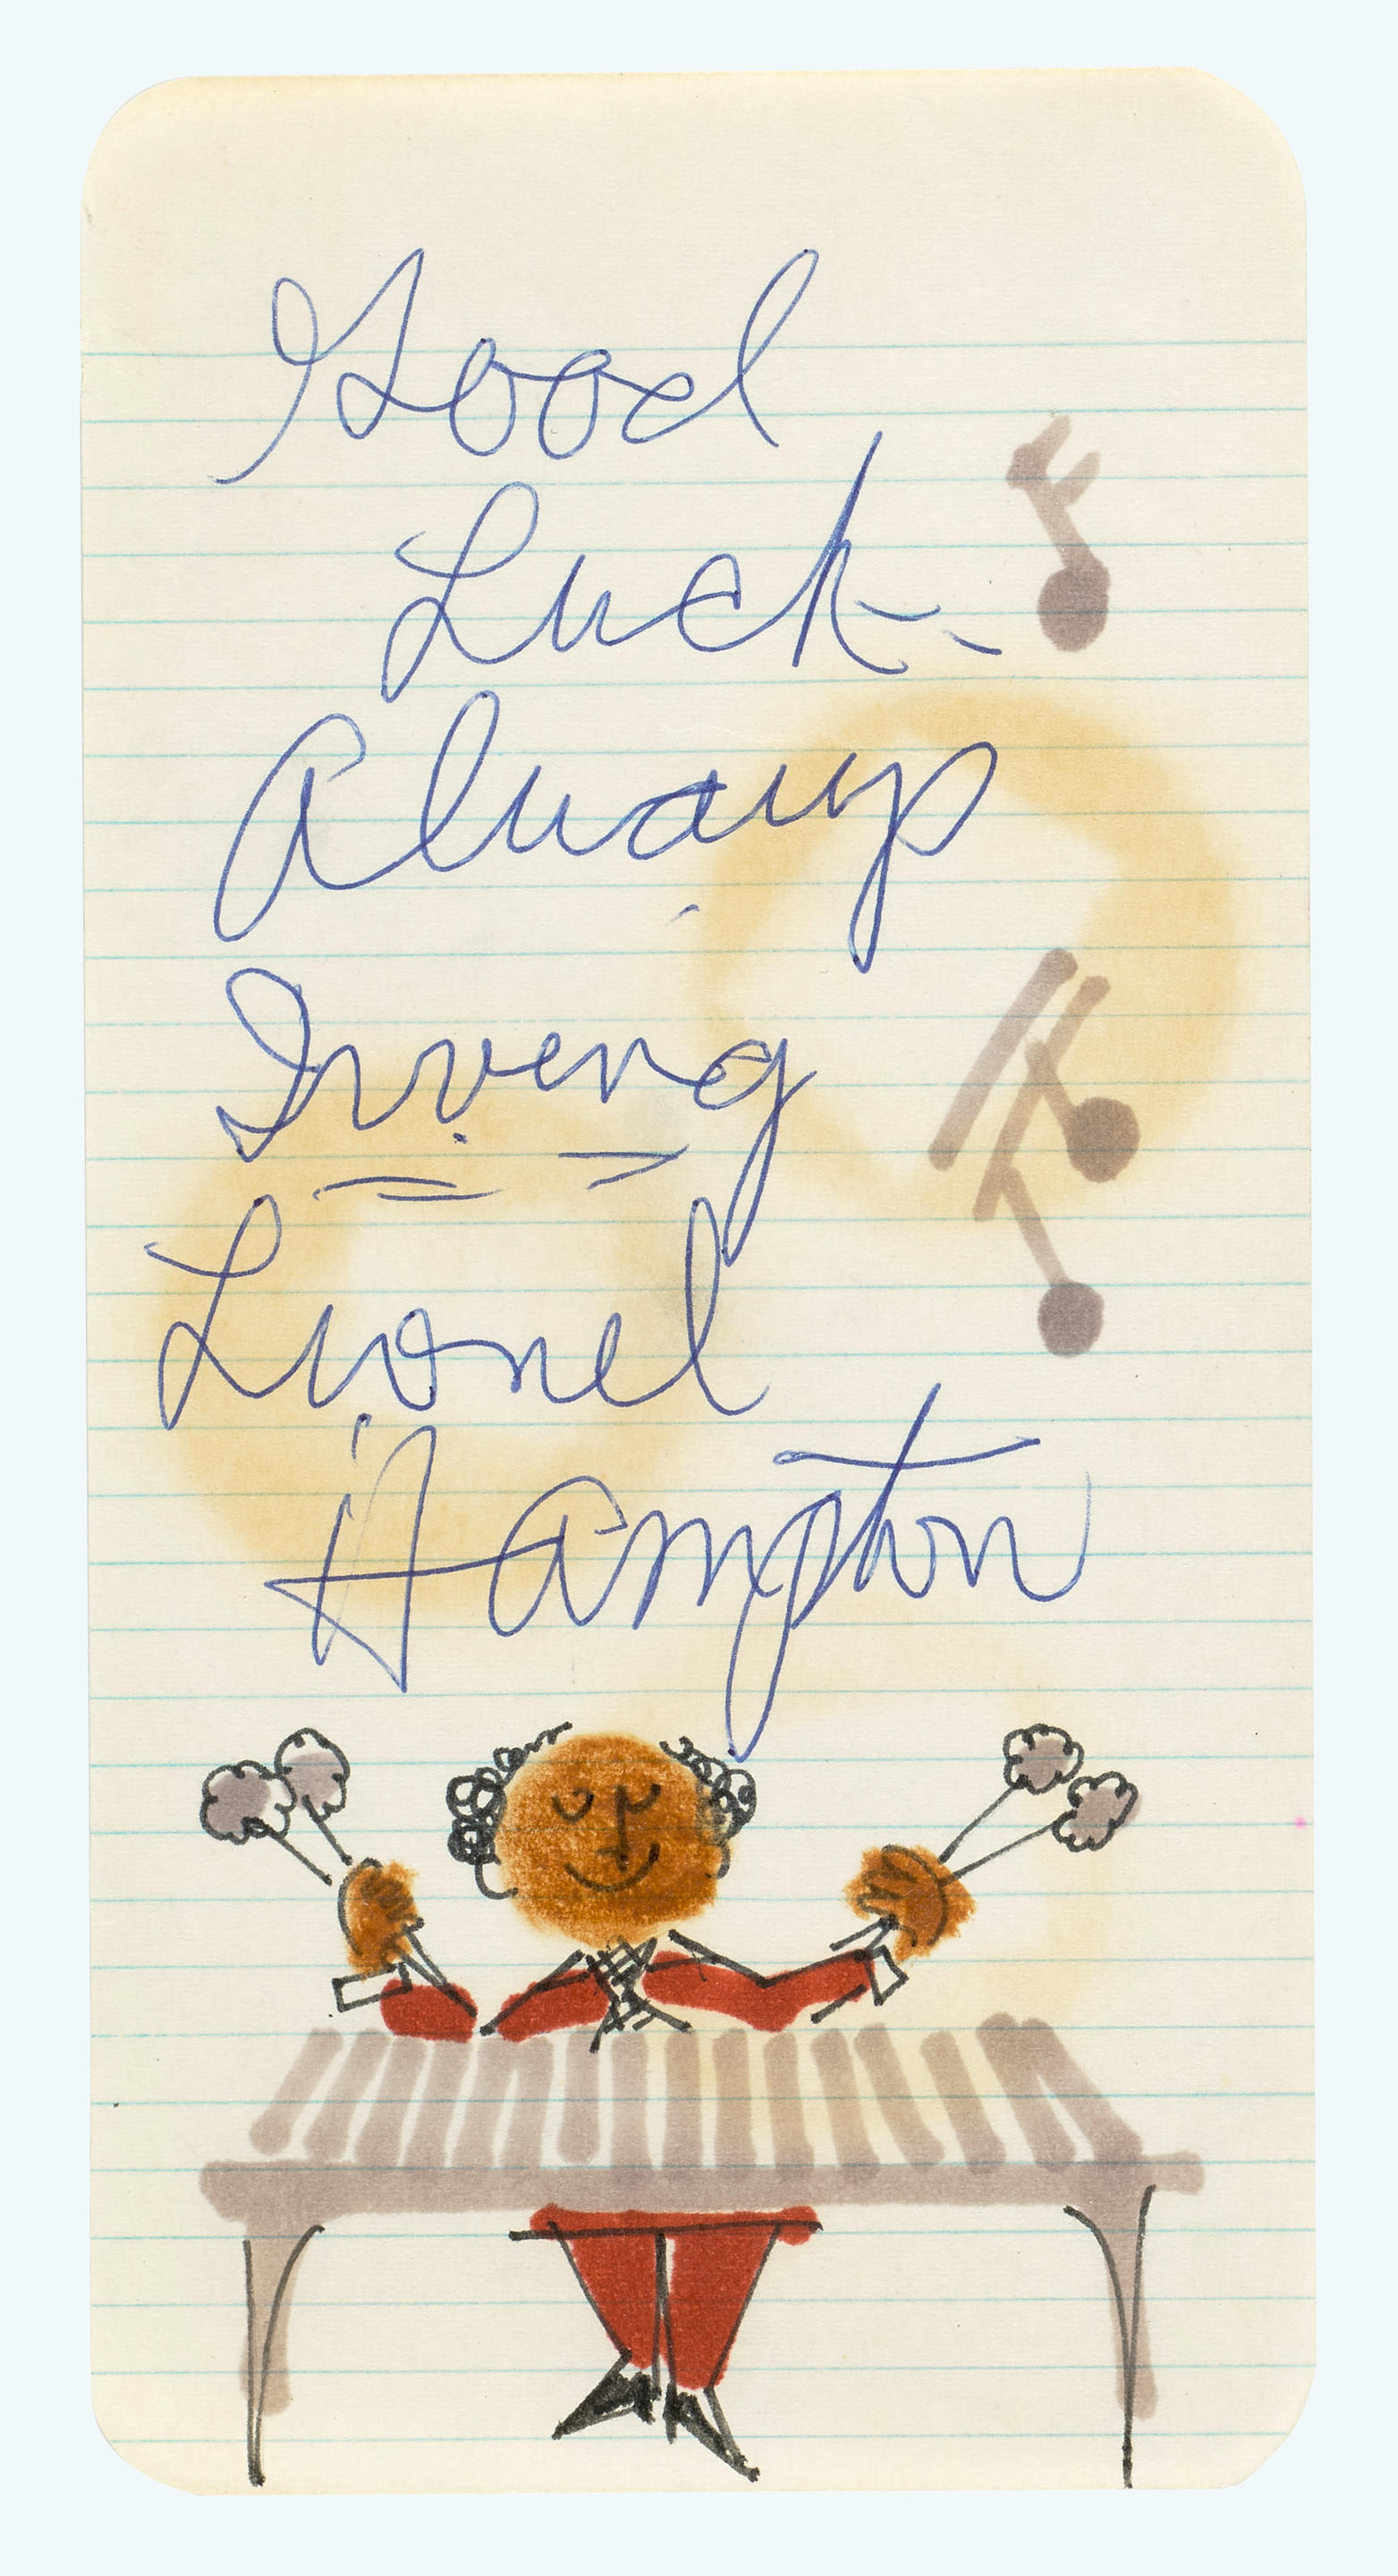 Good
Luck -
Always
Irving
Lionel
Hampton